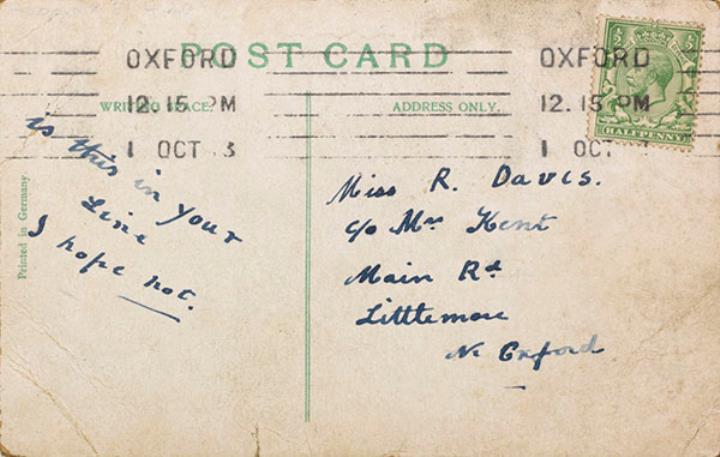 POST CARD
OXFORD
12. 15 PM
1 OCT 3
OXFORD
12. 15 PM
1 OCT
WRITING SPACE.
ADDRESS ONLY.
HALFPENNY
Printed in Germany
is this in your
Line
I hope not.
Miss R. Davis.
c/o Mrs Kent
Main Rd
Littlemore
Nr Oxford